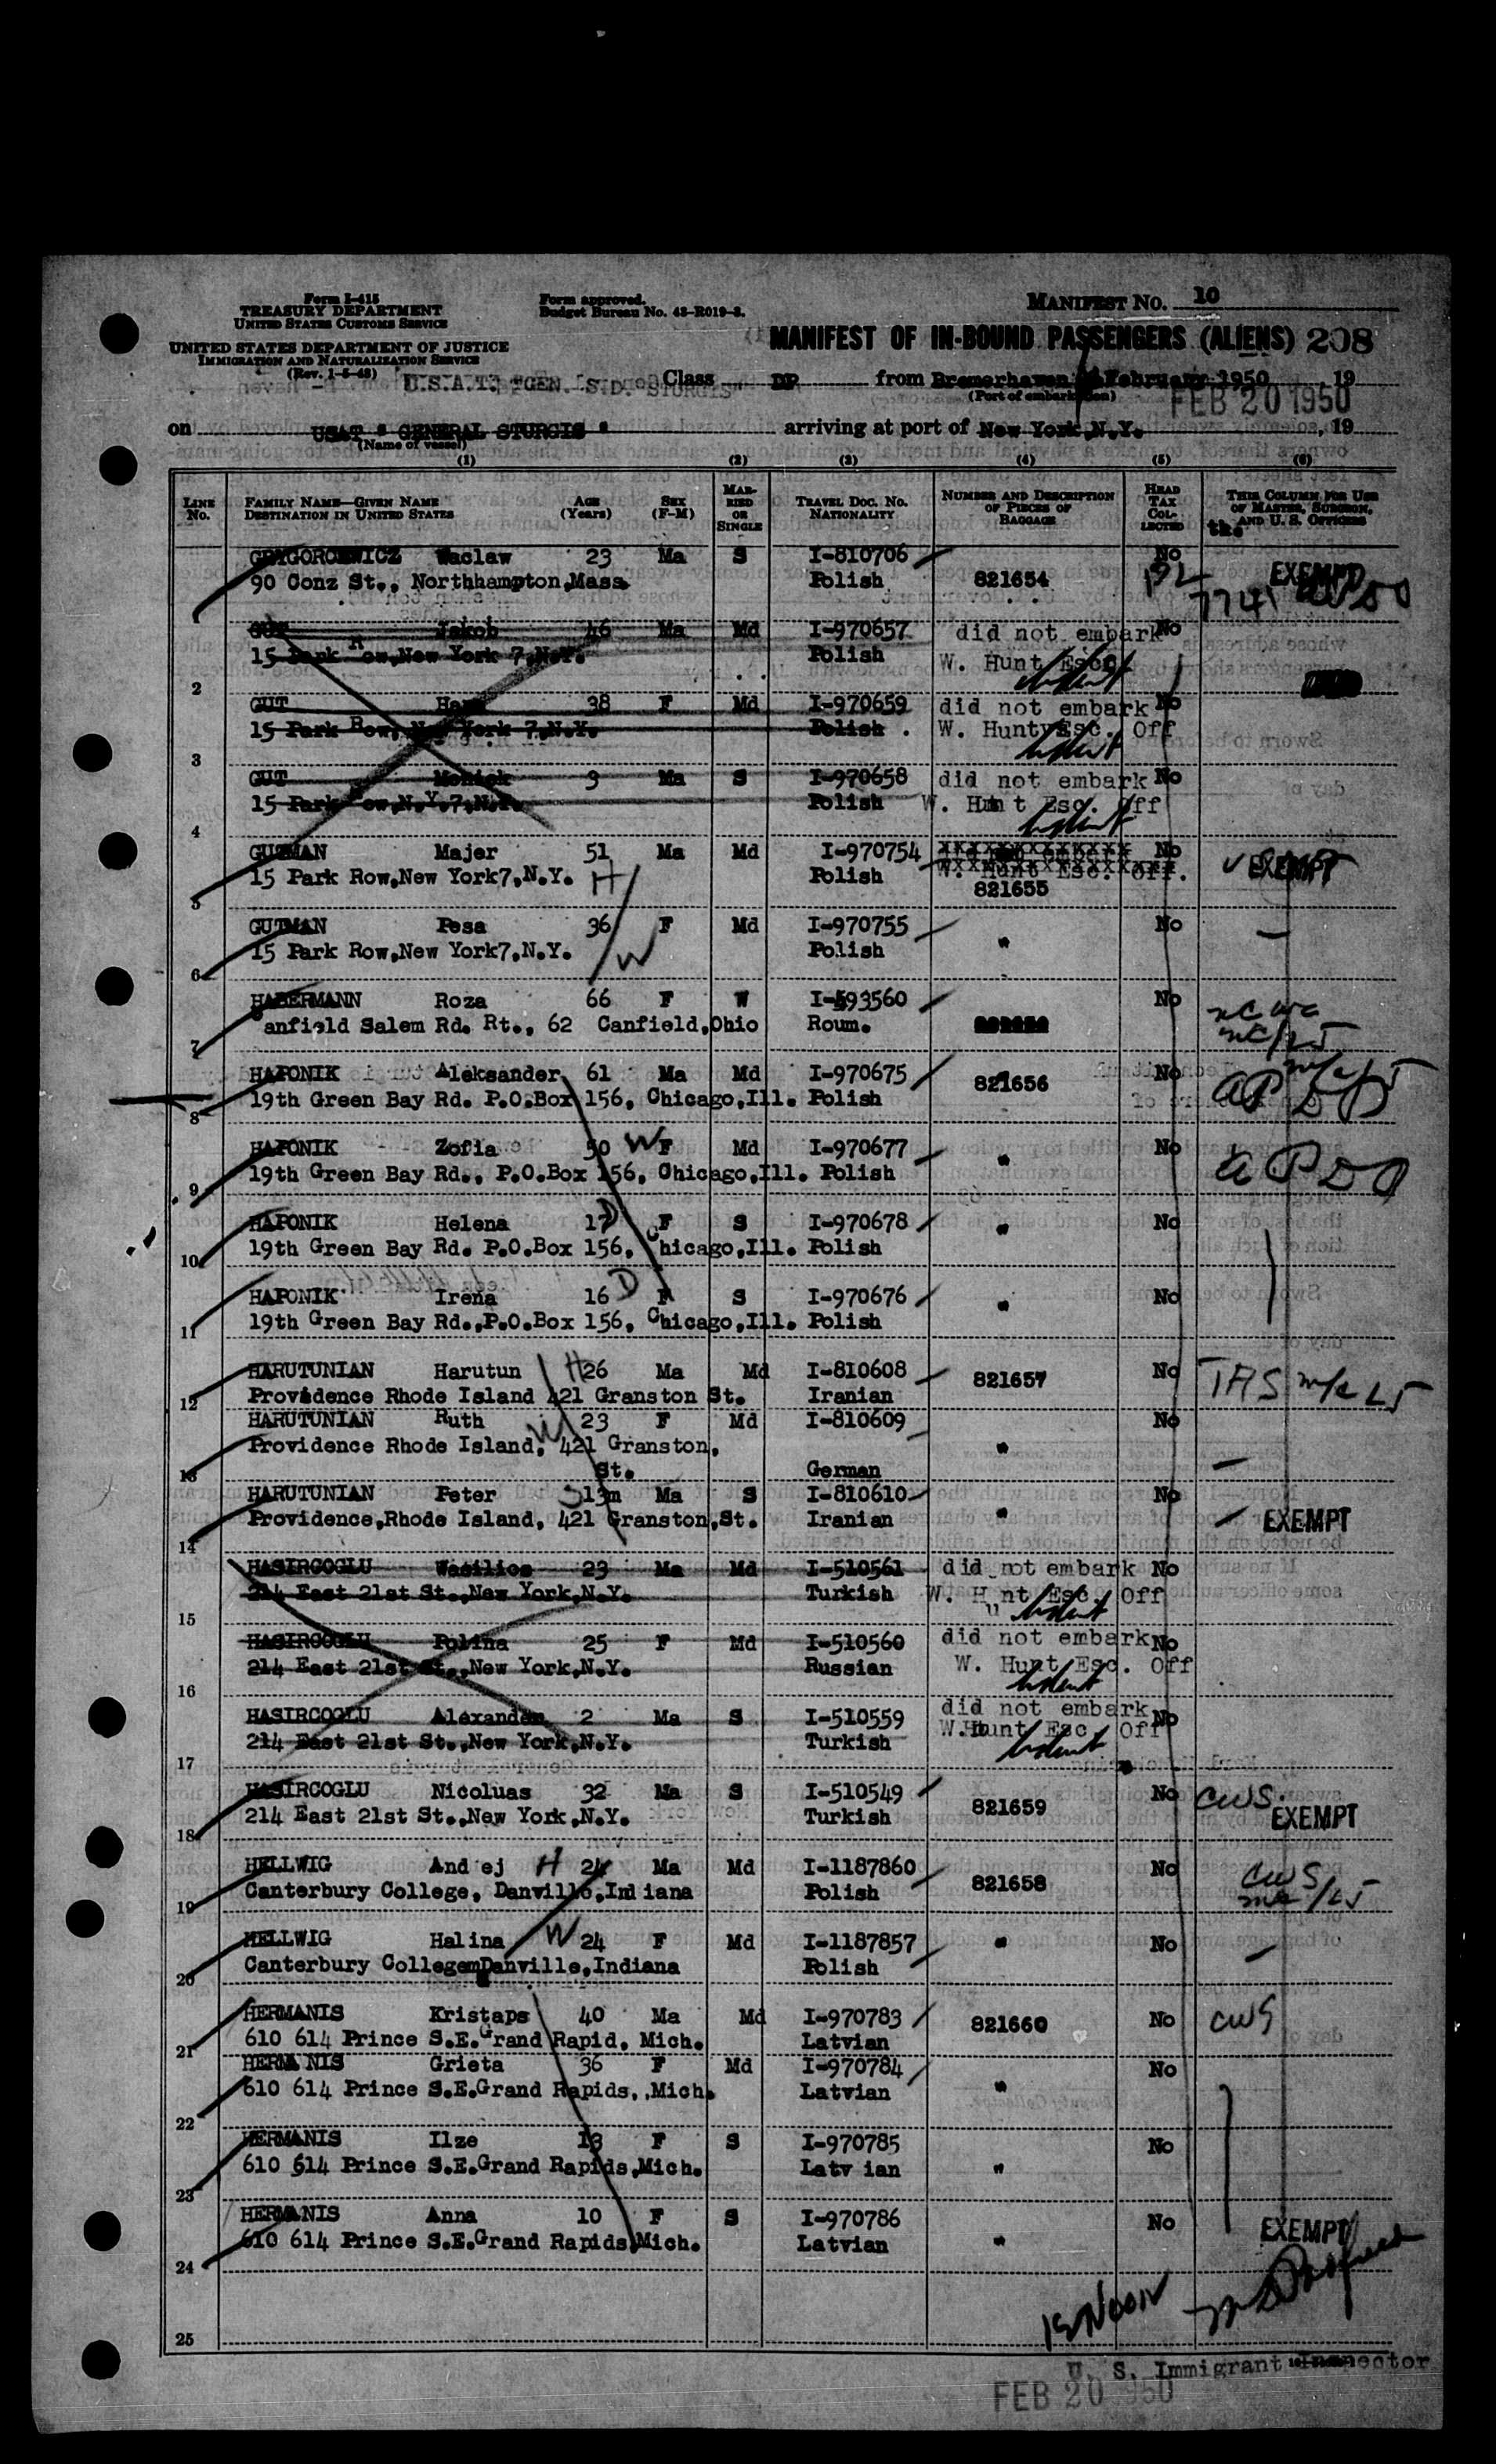 Form I-415
TREASURY DEPARTMENT
UNITED STATES CUSTOMS SERVICE
Form approved.
Budget Bureau No. 43-R019-3.
MANIFEST NO. 10
UNITED STATES DEPARTMENT OF JUSTICE
IMMIGRATION AND NATURALIZATION SERVICE
(Rev. 1-5-48)
MANIFEST OF IN-BOUND PASSENGERS (ALIENS) 208
U.S.A.T. "GEN. S.D. STURGIS" Class DP from Bremerhaven February 1950, 19
(Port of embarkation)
FEB 20 1950
on USAT " GENERAL STURGIS " arriving at port of New York,N.Y., 19
(Name of vessel)
(1) (2) (3) (4) (5) (6)
LINE No. FAMILY NAME—GIVEN NAME DESTINATION IN UNITED STATES AGE (Years) SEX (F-M) MARRIED OR SINGLE TRAVEL DOC. NO. NATIONALITY NUMBER AND DESCRIPTION OF PIECES OF BAGGAGE HEAD TAX COLLECTED THIS COLUMN FOR USE OF MASTER, SURGEON, AND U. S. OFFICERS
the
GRYGORCEWICZ Waclaw 23 Ma S I-810706 No
90 Conz St., Northhampton,Mass Polish 821654 EXEMPT
1 7741
GUT Jakob 46 Ma Md I-970657 did not embark No
15 Park Row,New York 7,N.Y. Polish W. Hunt Esc.
2
GUT 38 F Md I-970659 did not embark No
15 Park Row, New York 7,N.Y. Polish . W. Hunt Esc. Off
3
GUT 9 Ma S I-970658 did not embark No
15 Park Row,N.Y.7,N.Y. Polish W. Hunt Esc. Off
4
GUTMAN Majer 51 Ma Md I-970754 No
15 Park Row,New York7,N.Y. H Polish W. Hunt Esc. Off. EXEMPT
5 821655
GUTMAN Pesa 36 F Md I-970755 No
15 Park Row,New York7,N.Y. W Polish "
6
HABERMANN Roza 66 F W I-593560 No
Canfield Salem Rd. Rt., 62 Canfield,Ohio Roum.
7
HAPONIK Aleksander 61 Ma Md I-970675 821656 No
19th Green Bay Rd. P.O.Box 156, Chicago,Ill. Polish
8
HAPONIK Zofia 50 W F Md I-970677 " No
19th Green Bay Rd., P.O.Box 156, Chicago,Ill. Polish
9
HAPONIK Helena 17 D F S I-970678 " No
19th Green Bay Rd. P.O.Box 156, Chicago,Ill. Polish
10
HAPONIK Irena 16 D F S I-970676 " No
19th Green Bay Rd.,P.O.Box 156, Chicago,Ill. Polish
11
HARUTUNIAN Harutun H 26 Ma Md I-810608 821657 No
Providence Rhode Island 421 Granston St. Iranian
12
HARUTUNIAN Ruth W 23 F Md I-810609 No
Providence Rhode Island, 421 Granston, "
13 St. German
HARUTUNIAN Peter S 13m Ma S I-810610 " No
Providence,Rhode Island, 421 Granston,St. Iranian EXEMPT
14
HASIRCOGLU Wasilios 23 Ma Md I-510561 did not embark No
214 East 21st St.,New York,N.Y. Turkish W. Hunt Esc. Off
15
HASIRCOGLU Polina 25 F Md I-510560 did not embark No
214 East 21st St.,New York,N.Y. Russian W. Hunt Esc. Off
16
HASIRCOGLU Alexander 2 Ma S I-510559 did not embark No
214 East 21st St.,New York,N.Y. Turkish W.Hunt Esc. Off
17
HASIRCOGLU Nicoluas 32 Ma S I-510549 821659 No CWS.
214 East 21st St.,New York,N.Y. Turkish EXEMPT
18
HELLWIG And ej H 24 Ma Md I-1187860 821658 No CWS
Canterbury College, Danville,Indiana Polish
19
HELLWIG Halina W 24 F Md I-1187857 " No
Canterbury College Danville,Indiana Polish
20
HERMANIS Kristaps 40 Ma Md I-970783 821660 No CWS
610 614 Prince S.E.Grand Rapid, Mich. Latvian
21
HERMA NIS Grieta 36 F Md I-970784 No
610 614 Prince S.E.Grand Rapids,.Mich. Latvian "
22
HERMANIS Ilze 13 F S I-970785 No
610 614 Prince S.E.Grand Rapids,Mich. Latv ian "
23
HERMANIS Anna 10 F S I-970786 No
610 614 Prince S.E.Grand Rapids,Mich. Latvian " EXEMPT
24
12 Noon
25
U. S. Immigrant Inspector
FEB 20 1950